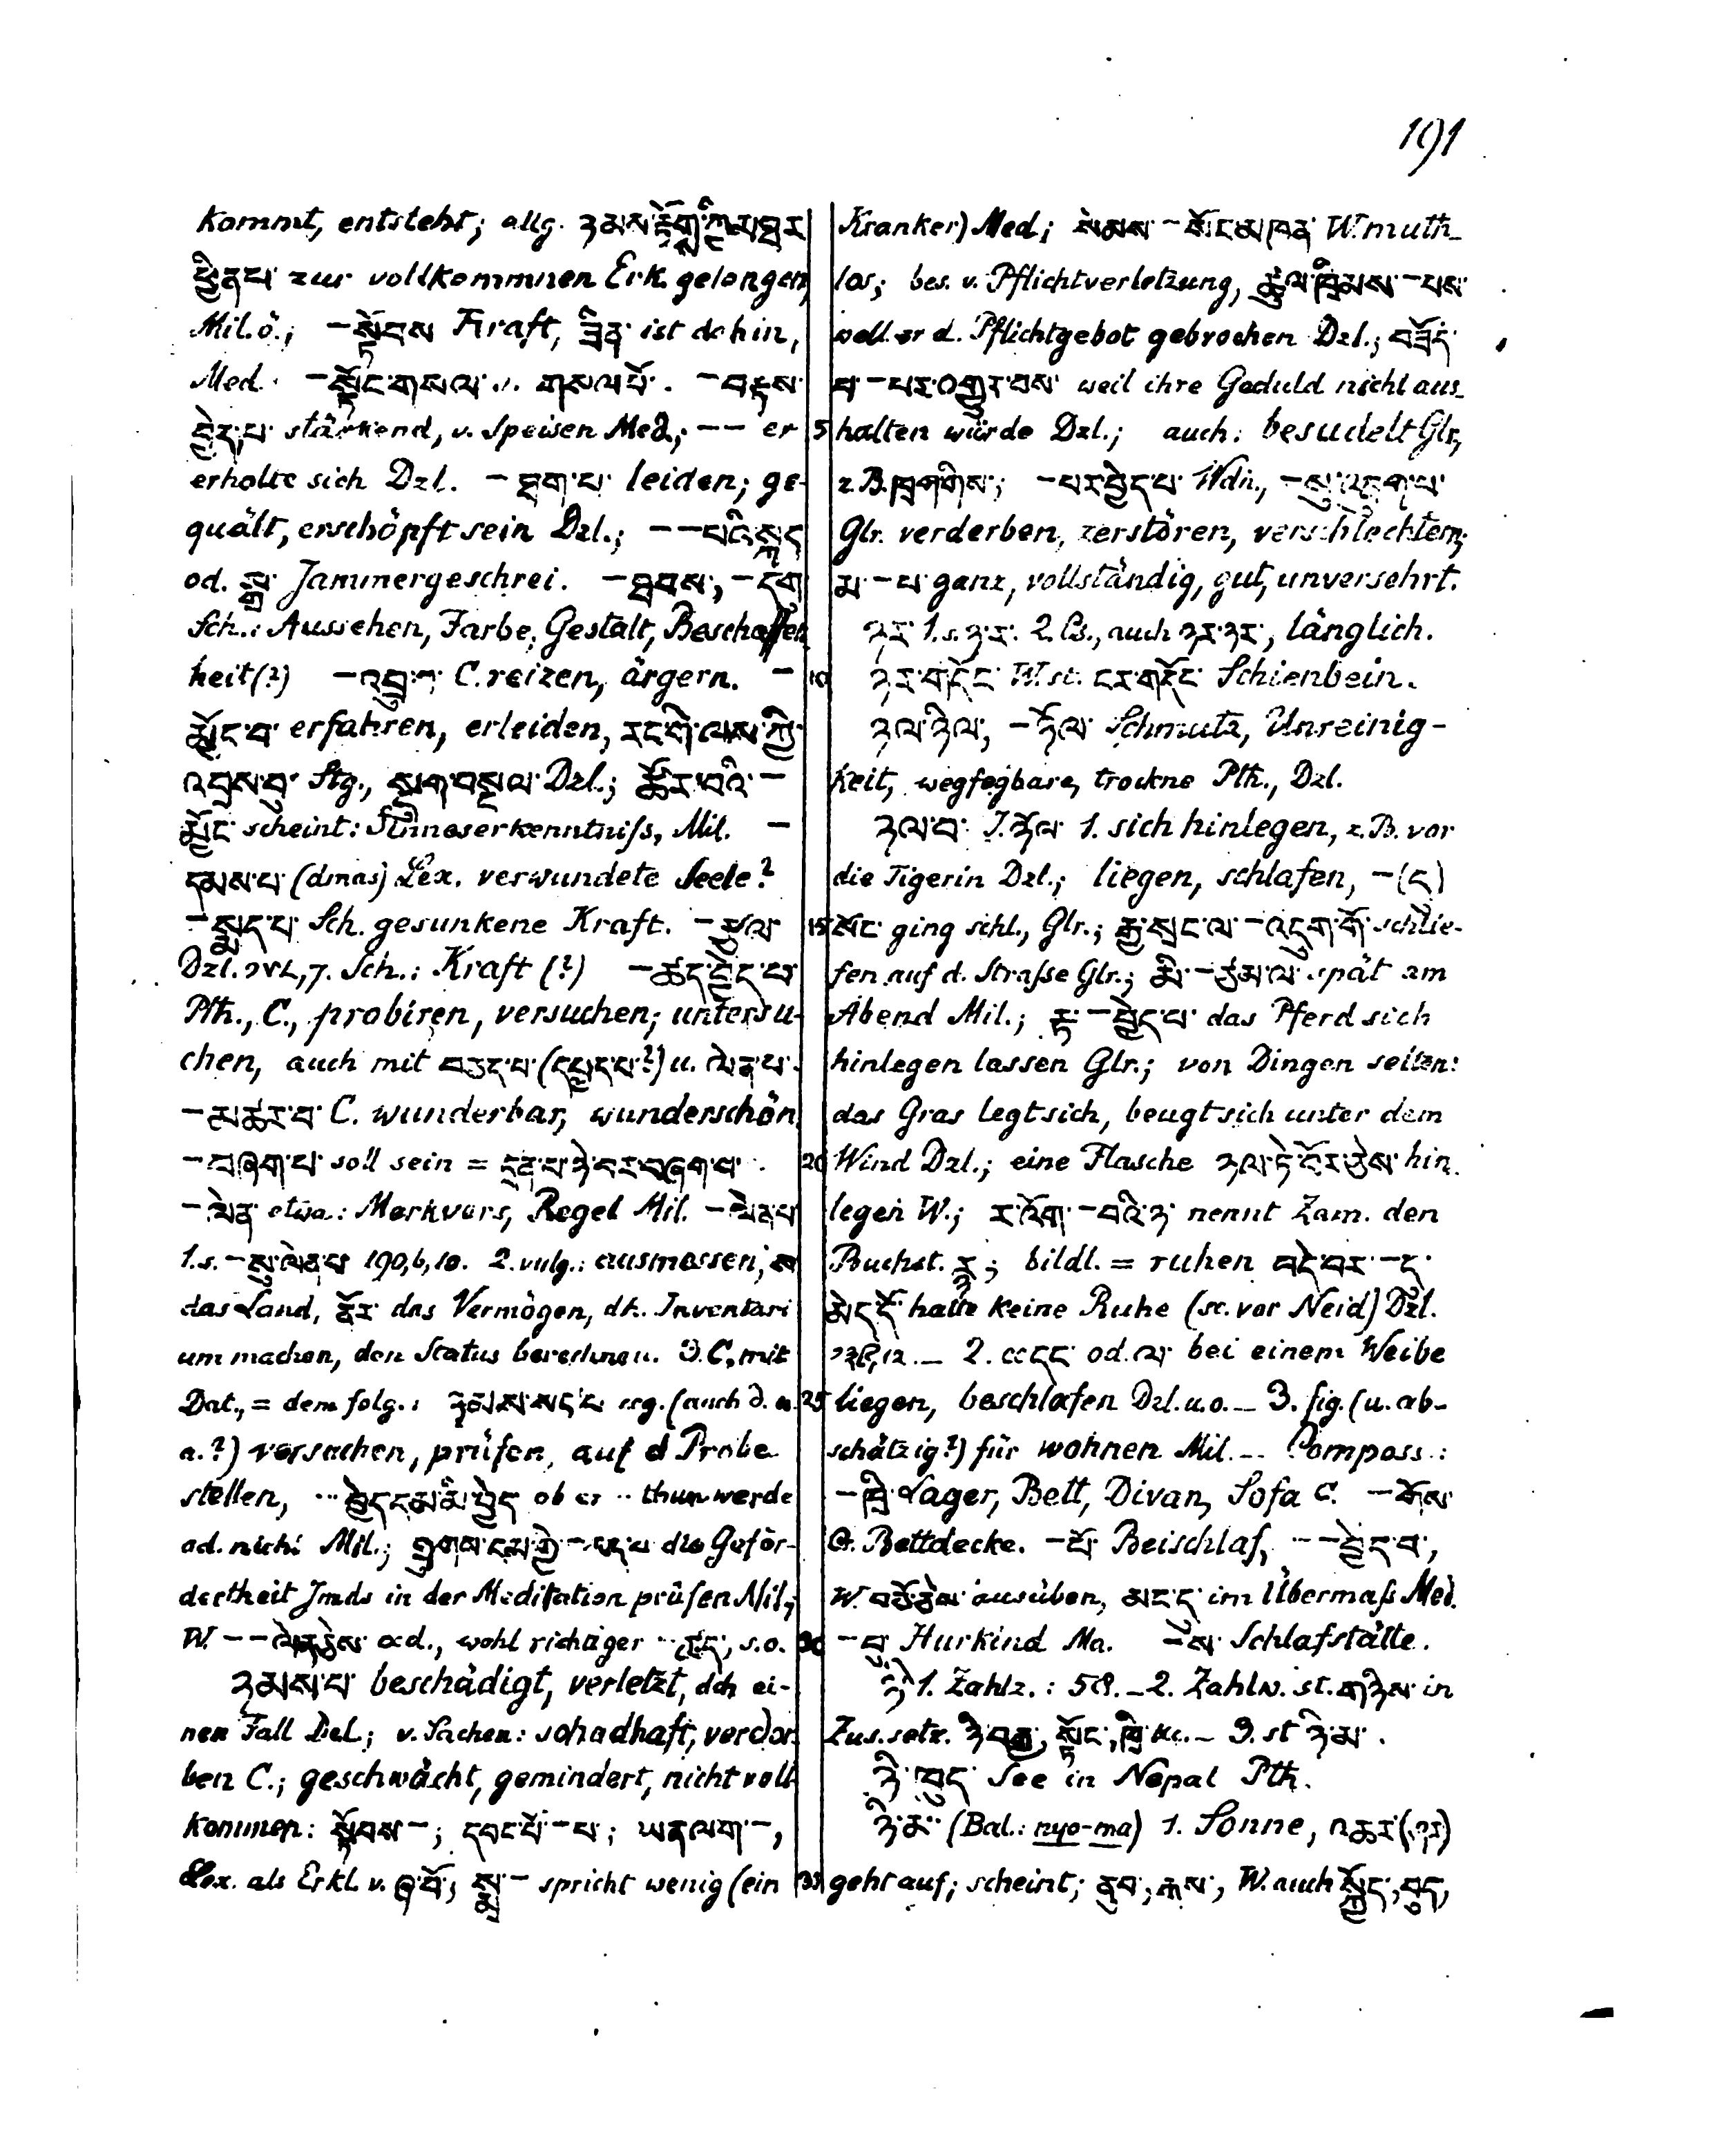 191
kommt, entsteht; allg. ཉམས་རྟོགས་ཀྱི་
ཕྱིན་པ་ zur vollkommnen Erk. gelangen,
Mil. ö.; – སྟོབས Kraft, ཟིན་ ist dahin,
Med. –སྟོང་གསལ་ གསལ་པོ་. –བརྟས་
བྱེད་པ་ stärkend, v. Speisen Med.; –– er
erholte sich Dzl. –ཐག་པ་ leiden; ge-
quält, erschöpft sein Dzl.; ––པའི་སྐད
od. སྒྲ་ Jammergeschrei. –
Sch.: Aussehen, Farbe, Gestalt, Beschaffen
heit (?) – C. reizen, ärgern. –
མྱོང་བ་ erfahren, erleiden, རང་གི་ལས་ཀྱི་
འབྲས་བུ་ Stg., སྡུག་བསྔལ་ Dzl.; ཚོར་བའི་ –
མྱོང་ scheint: Sinneserkenntniß, Mil. –
དམས་པ་ (dmas) Lex. verwundete Seele?
– Sch. gesunkene Kraft. –
Dzl. ༢༧༤, 7. Sch.: Kraft (?) –ཚད་བྱེད་པ་
Pth., C., probiren, versuchen; untersu-
chen, auch mit (དཔྱད་པ་?) u. ལེན་པ་
–མཚར་བ་ C. wunderbar, wunderschön
–བཞག་པ་ soll sein = དྲན་པ་ཉེ་བར་བཞག་པ་
–ལེན་ etwa: Merkvers, Regel Mil. –ལེན་པ
1. s. –སུ་ལེན་པ་ 190, b, 10. 2. vulg.: ausmessen, ས
das Land, ནོར་ das Vermögen, dh. Inventari
um machen, den Status berechnen. 3. C., mit
Dat., = dem folg.: ཉམས་སད་པ (auch
a.?) versuchen, prüfen, auf d Probe
stellen, ·· བྱེད་དམ་མི་བྱེད ob er ·· thun werde
od. nicht Mil.; die Geför-
dertheit Jmds in der Meditation prüfen Mil.;
W. –– ལེན་ od., wohl richtiger s. o.
ཉམས་པ་ beschädigt, verletzt, dch ei-
nen Fall Dzl.; v. Sachen: schadhaft, verdor-
ben C.; geschwächt, gemindert, nicht voll-
kommen: སྟོབས་–; དབང་པོ་–པ་; ཡན་ལག་–,
Lex. als Erkl. v. སྨྲ་– spricht wenig (ein
Kranker) Med.; སེམས་–སོང་མཁན་ W. muth-
los; bes. v. Pflichtverletzung, ཚུལ་ཁྲིམས་–པས་
weil er d. Pflichtgebot gebrochen Dzl.; བཟོད་
པ་–པར་འགྱུར་བས་ weil ihre Geduld nicht aus-
5 halten würde Dzl.; auch: besudelt Glr.,
z. B. ཁྲག་གིས་; –པར་བྱེད་པ་ Wdn., –སུ་འཇུག་པ་
Glr. verderben, zerstören, verschlechtern;
མ་–པ་ ganz, vollständig, gut, unversehrt.
ཉར་ 1. s. 2. Cs., auch ཉར་ཉར་, länglich.
10 ཉར་གདོང་ W. st. ངར་གདོང་ Schienbein.
ཉལ་ཉིལ་, –ཉོལ་ Schmutz, Unreinig-
keit, wegfegbare, trockne Pth., Dzl.
ཉལ་བ་ I. ཉོལ་ 1. sich hinlegen, z. B. vor
die Tigerin Dzl.; liegen, schlafen, –(དུ)
15 སོང་ ging schl., Glr.; རྒྱ་སྲང་ལ་–འདུག་གོ་ schlie-
fen auf d. Straße Glr.; མི་– spät am
Abend Mil.; རྟ་–བྱེད་པ་ das Pferd sich
hinlegen lassen Glr.; von Dingen selten:
das Gras legt sich, beugt sich unter dem
20 Wind Dzl.; eine Flasche ཉལ་ཏེ་བོར་ཅེས་ hin-
legen W.; ར་འོག་–བའི་ཉ་ nennt Zam. den
Buchst. རྙ; bildl. = ruhen བདེ་བར་–དུ་
མེད་དོ་ hatte keine Ruhe (sc. vor Neid) Dzl.
༢༣༩, 12. – 2. དང་ od. ལ་ bei einem Weibe
25 liegen, beschlafen Dzl. u. o. – 3. fig. (u. ab-
schätzig?) für wohnen Mil. – Composs.:
–ཁྲི་ Lager, Bett, Divan, Sofa C. –གོས་
C. Bettdecke. –པོ་ Beischlaf, ––བྱེད་པ་,
W. ausüben, མང་དུ་ im Übermaß Med.
30 –བུ་ Hurkind Ma. –ས་ Schlafstätte.
ཉི་ 1. Zahlz.: 58. – 2. Zahlw. st. གཉིས་ in
Zus. setz. ཉི་བརྒྱ, སྟོང་, ཁྲི་ &c. – 3. st ཉི་མ་.
ཉི་ See in Nepal Pth.
ཉི་མ་ (Bal.: nyo-ma) 1. Sonne, འཆར་(ཤར)
35 geht auf; scheint; ནུབ་, རྒས་, W. auch སྐྱོད་, བུད་,